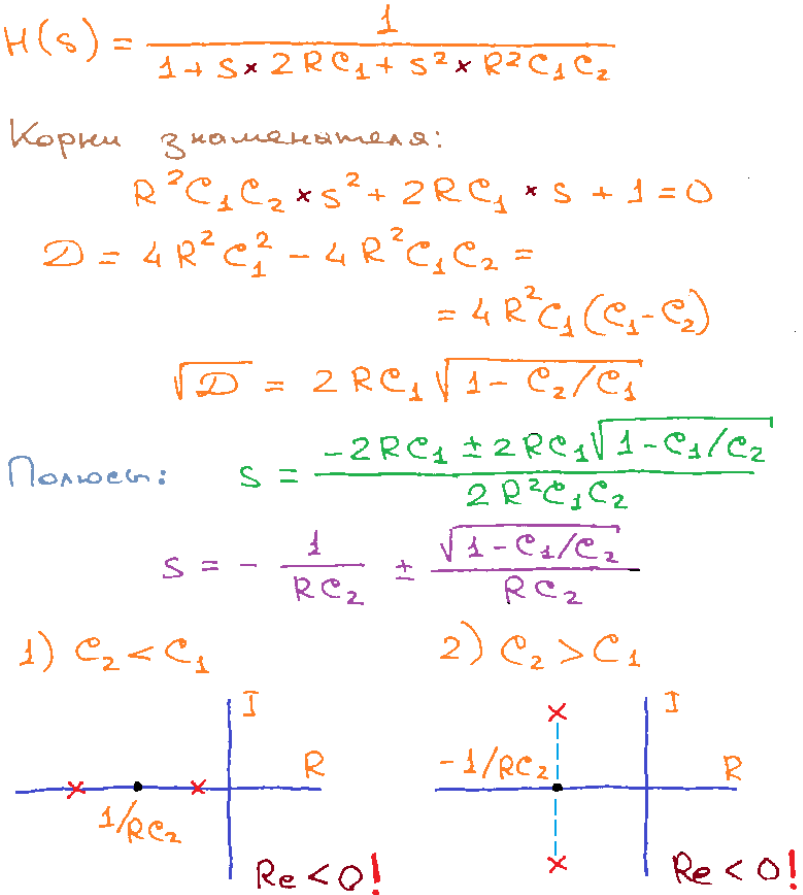 H(s) = 1 / (1 + s × 2RC₁ + s² × R²C₁C₂)
Корни знаменателя:
R²C₁C₂ × s² + 2RC₁ × s + 1 = 0
D = 4R²C₁² − 4R²C₁C₂ =
= 4R²C₁(C₁ - C₂)
√D = 2RC₁√(1 − C₂/C₁)
Полюсы: s = (−2RC₁ ± 2RC₁√(1 − C₁/C₂)) / (2R²C₁C₂)
s = − 1/(RC₂) ± √(1 − C₁/C₂)/(RC₂)
1) C₂ < C₁
2) C₂ > C₁
I
R
1/RC₂
Re < 0!
I
−1/RC₂
R
Re < 0!